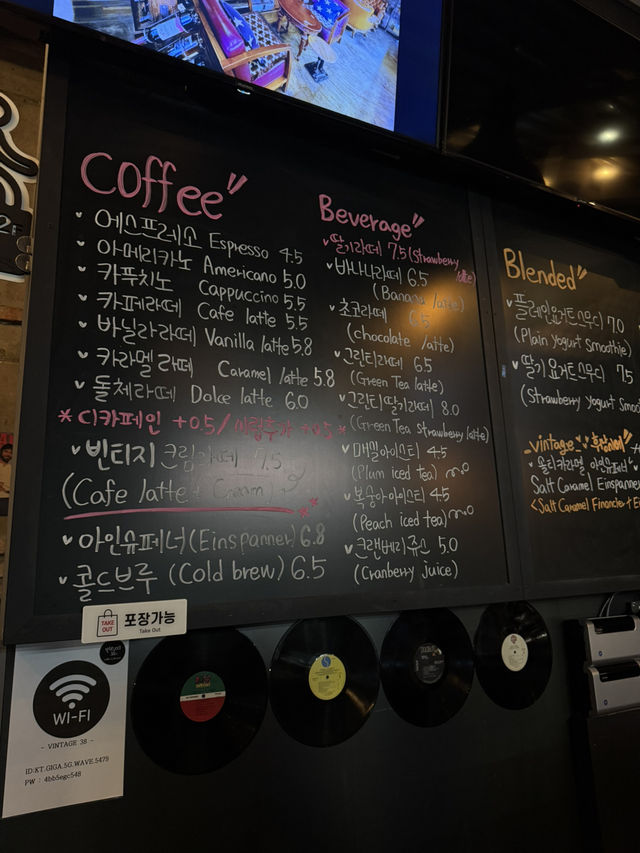 Coffee"
에스프레소 Espresso 4.5
아메리카노 Americano 5.0
카푸치노 Cappuccino 5.5
카페라떼 Cafe latte 5.5
바닐라라떼 Vanilla latte 5.8
카라멜라떼 Caramel latte 5.8
돌체라떼 Dolce latte 6.0
*디카페인 +0.5/ +0.5*
빈티지 크림라떼 7.5
(Cafe latte + Cream)
아인슈페너(Einspanner) 6.8
콜드브루 (Cold brew) 6.5
Beverage"
딸기라떼 7.5 (Strawberry latte)
바나나라떼 6.5
(Banana latte)
초코라떼 6.5
(chocolate latte)
그린티라떼 6.5
(Green Tea latte)
그린티딸기라떼 8.0
(Green Tea Strawberry latte)
매실아이스티 4.5
(Plum iced tea)
복숭아아이스티 4.5
(Peach iced tea)
크랜베리쥬스 5.0
(Cranberry juice)
Blended"
플레인요거트스무디 7.0
(Plain yogurt smoothie)
딸기요거트스무디 7.5
(Strawberry yogurt smoo
vintage
Salt Caramel Einspanner
<Salt Caramel Financier + E
TAKE OUT 포장가능
Take Out
WI-FI
- VINTAGE 38 -
ID:KT.GIGA.5G.WAVE.5479
PW : 4bb5egc548